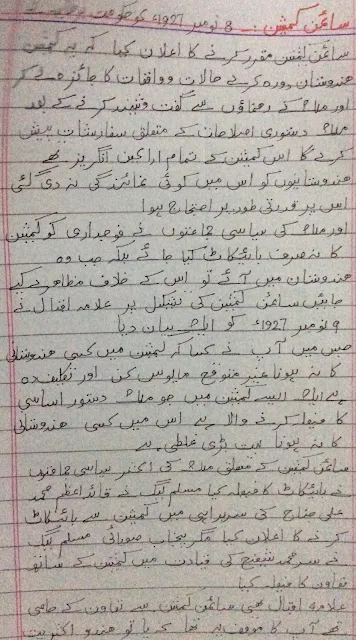 سائمن کمیشن :۔ 8 نومبر 1927ء کو حکومت برطانیہ نے
سائمن کمیشن مقرر کرنے کا اعلان کیا کہ یہ کمیشن
ہندوستان دورہ کرکے حالات و واقعات کا جائزہ لے کر
اور ملک کے رہنماؤں سے گفت و شنید کرنے کے بعد
ملک دستوری اصلاحات کے متعلق سفارشات پیش
کرے گا اس کمیشن کے تمام اراکین انگریز تھے
ہندوستانیوں کو اس میں کوئی نمائندگی نہ دی گئی
اس پر قدرتی طور پر احتجاج ہوا
اور ملک کی سیاسی جماعتوں نے کو کمیشن
کا نہ صرف بائیکاٹ کیا جائے بلکہ جب وہ
ہندوستان میں آئے تو اس کے خلاف مظاہرے کیے
جائیں سائمن کمیشن کی تشکیل پر علامہ اقبال نے
9 نومبر 1927ء کو ایک بیان دیا
جس میں آپ نے کہا کہ کمیشن میں کسی ہندوستانی
کا نہ ہونا غیر متوقع مایوس کن اور تکلیف دہ
ہے ایک ایسے کمیشن میں جو ملک دستور اساسی
کا فیصلہ کرنے والا ہے اس میں کسی ہندوستانی
کا نہ ہونا بہت بڑی غلطی ہے
سائمن کمیشن کے متعلق ملک کی اکثر سیاسی جماعتوں
نے بائیکاٹ کا فیصلہ کیا مسلم لیگ نے قائد اعظم محمد
علی جناح کی سربراہی میں کمیشن سے بائیکاٹ
کرنے کا اعلان کیا مگر پنجاب صوبائی مسلم لیگ
نے سر محمد شفیع کی قیادت میں کمیشن کے ساتھ
تعاون کا فیصلہ کیا
علامہ اقبال بھی سائمن کمیشن سے تعاون کے حامی
تھے آپ کا موقف یہ تھا کہ یا تو ہندو اکثریت